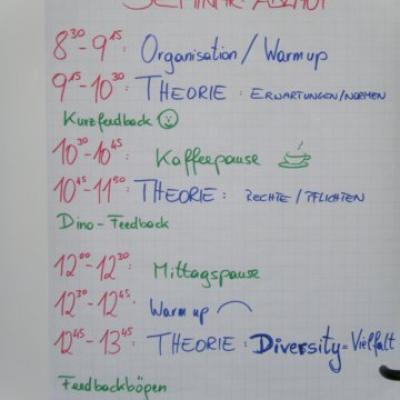 SEMINAR-ABLAUF
8³⁰-9¹⁵: Organisation / Warm up
9¹⁵-10³⁰: THEORIE : ERWARTUNGEN/NORMEN
Kurzfeedback
10³⁰-10⁴⁵: Kaffeepause
10⁴⁵-11⁵⁰: THEORIE : RECHTE / PFLICHTEN
Dino-Feedback
12⁰⁰-12³⁰: Mittagspause
12³⁰-12⁴⁵: Warm up
12⁴⁵-13⁴⁵: THEORIE : Diversity=Vielfalt
Feedbackböpen